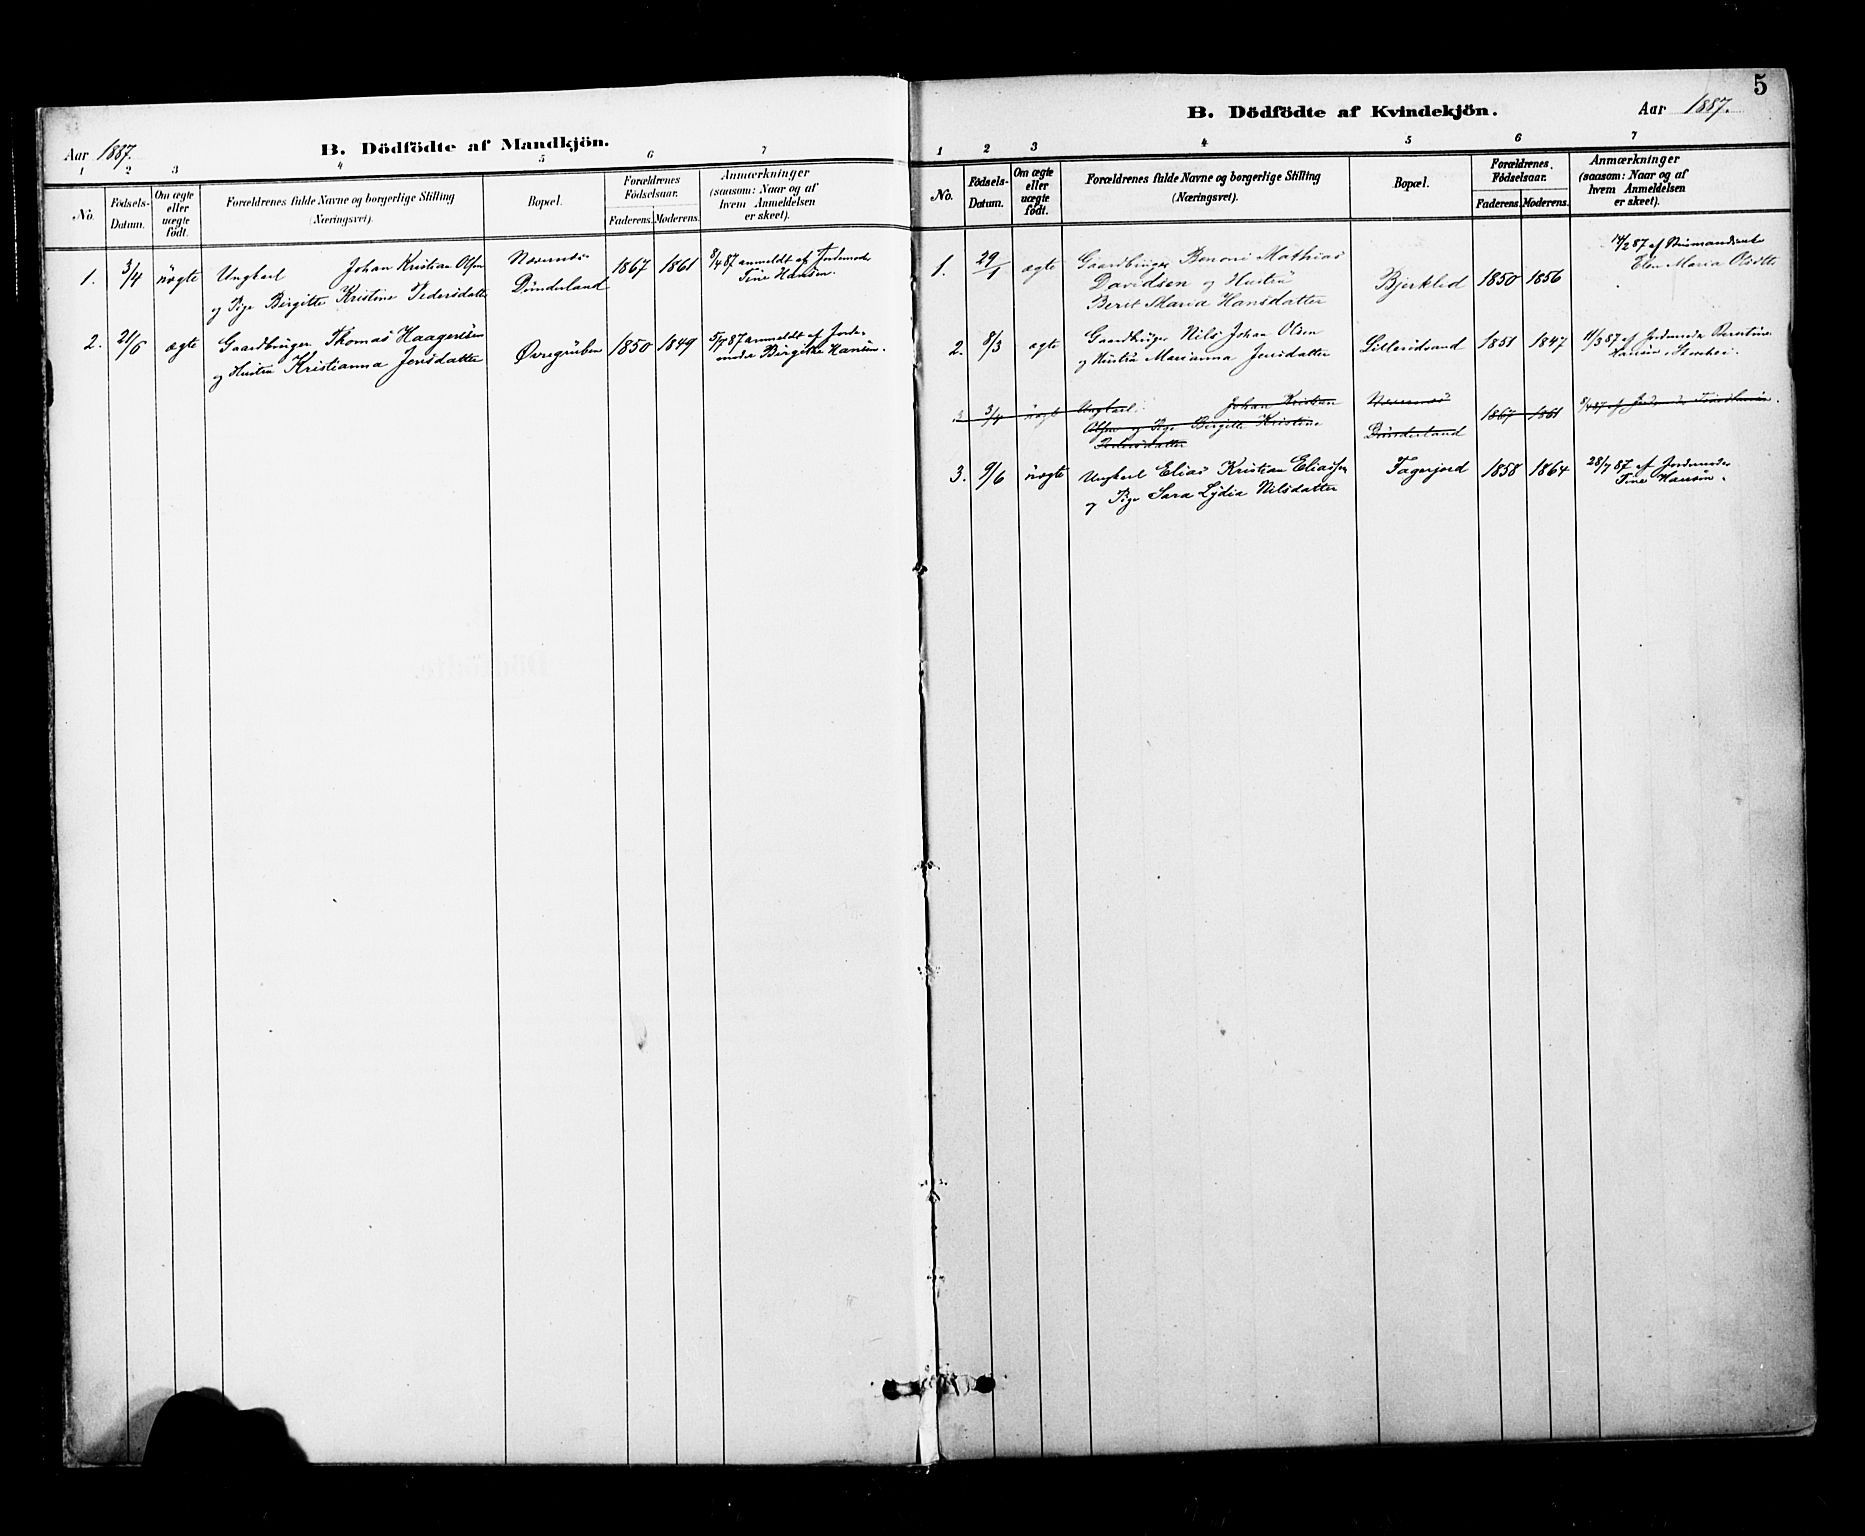 Aar 1887.
B. Dödfödte af Mandkjön.
1 2 3 4 5 6 7
No.
Födsels-Datum.
Om ægte eller uægte födt.
Forældrenes fulde Navne og borgerlige Stilling (Næringsvei).
Bopæl.
Forældrenes Födselsaar.
Faderens. Moderens.
Anmærkninger (saasom: Naar og af hvem Anmeldelsen er skeet).
1. 3/4 uægte Ungkarl Johan Kristian Olsen
og Pige Birgitte Kristine Pedersdatter
Dunderland 1867 1861
8/4 87 anmeldt af Jordemoder
Tine Hansen.
2. 21/6 ægte Gaardbruger Thomas Haagensen
og Hustru Kristianna Jensdatter
Øvregruben 1850 1849
5/7 87 anmeldt af Jorde-
moder Birgitte Hansen.
5
B. Dödfödte af Kvindekjön.
Aar 1887.
1 2 3 4 5 6 7
No.
Födsels-Datum.
Om ægte eller uægte födt.
Forældrenes fulde Navne og borgerlige Stilling (Næringsvei).
Bopæl.
Forældrenes Födselsaar.
Faderens. Moderens.
Anmærkninger (saasom: Naar og af hvem Anmeldelsen er skeet).
1. 29/1 ægte Gaardbruger Benoni Mathias
Davidsen og Hustru
Berit Maria Hansdatter
Bjerklid 1850 1856
87 af
Elen Maria Olsdtr
2. 8/3 ægte Gaardbruger Nils Johan Olsen
og Hustru Marianna Jensdatter
1851 1847
11/3 87 af Jordemoder
Hansen
3. 3/4 uægte Ungkarl Johan Kristian
Olsen og Pige Birgitte Kristine
Pedersdatter
Dunderland 1867 1861
8/4 87 af Tine Hansen.
3. 9/6 uægte Ungkarl Elias Kristian Eliassen
og Pige Sara Lydia Nilsdatter
Fagerjord 1858 1864
28/7 87 af Jordemoder
Tine Hansen.